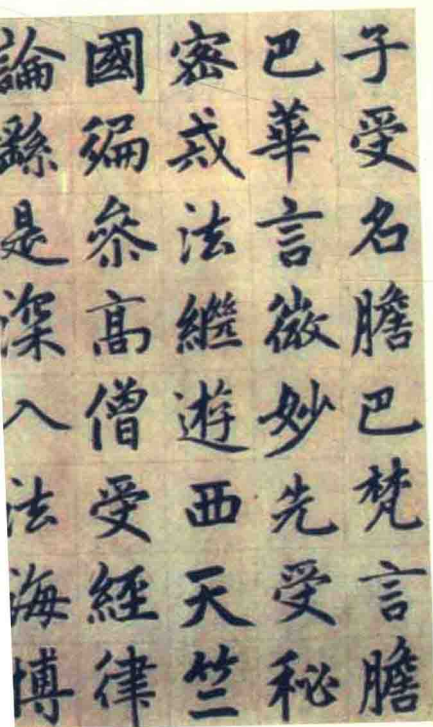 子受名膽巴梵言膽
巴華言微妙先受秘
密戒法繼遊西天竺
國徧參高僧受經律
論繇是深入法海博